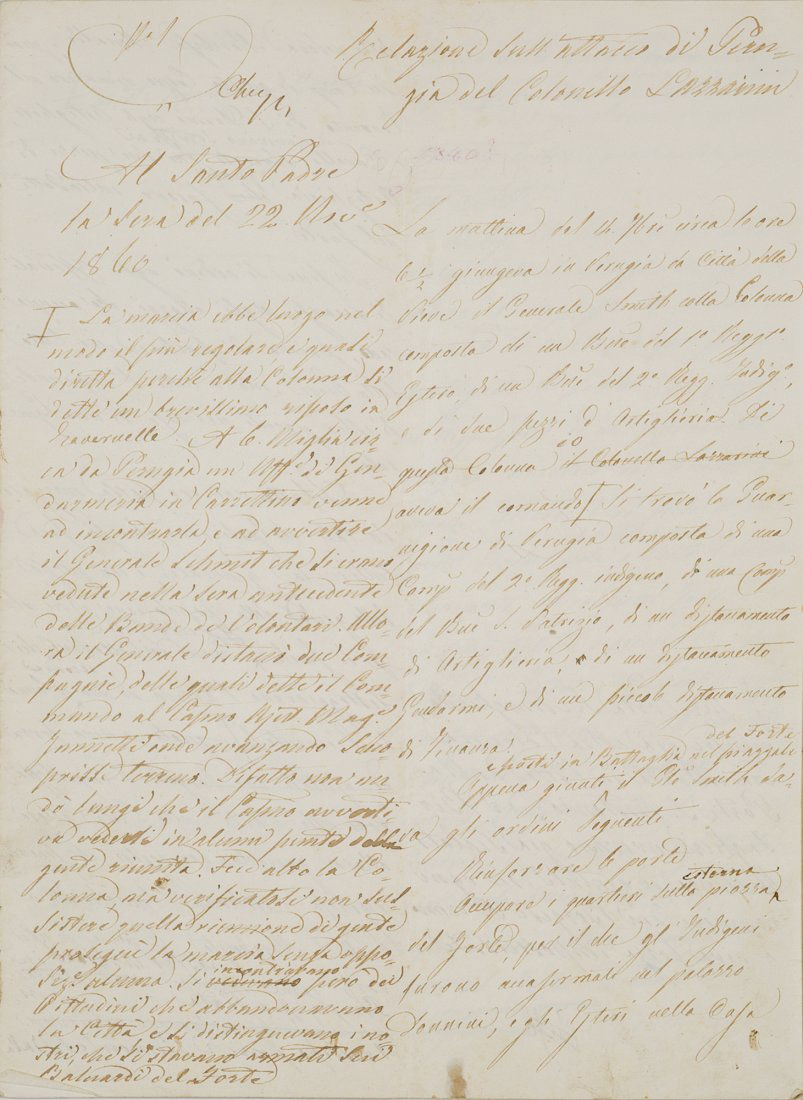 Relazione sull'attacco di Peru-
gia del Colonello Lazzarini
Al Santo Padre
la Sera del 22. Nov.e
1860
I La marcia ebbe luogo nel
modo il più regolare e quasi
diretta perchè alla Colonna si
dette un brevissimo riposo in
Tavernelle. A 6. Miglia cir-
ca da Perugia un Uff.e di Gen-
darmeria in Carrettino venne
ad incontrarla e ad avvertire
il Generale Schmit che si erano
vedute nella sera antecedente
delle Bande de' Volontari. Allo-
ra il Generale distaccò due Com-
pagnie, delle quali dette il Com-
mando al Capno Ajut. Magg.e
onde avanzando Sco-
prisse terreno. Difatto non an-
dò lungi che il Capno avverti-
va vedersi in alcuni punti della
gente riunita. Fece alto la Co-
lonna, ma verificatosi non sus-
sistere quella riunione di gente
proseguì la marcia senza oppo-
siz.e alcuna. Si incontravano però dei
Cittadini che abbandonavano
la Città e si distinguevano i no-
stri, che si stavano armati sui
Baluardi del Forte
La mattina del 14. 7bre circa le ore
6 1/2 giungeva in Perugia da Città della
Pieve il Generale Smith colla Colonna
composta di un Bne del 1o Reggto
Estero, di un Bne del 2o Regg. Indigo,
e di due pezzi d'Artiglieria. Di
questa Colonna il Colonello Lazzarini
aveva il comando I Si trovò la Guar-
nigione di Perugia composta di una
Comp del 2o Regg. indigeno, di una Comp
del Bne S. Patrizio, di un distaccamento
di Artiglieria, di un distaccamento
Gendarmi, e di un piccolo distaccamento
di Finanza.
del Forte
e posti in Battaglia nel piazzale
Appena giunti il Gle Smith da-
va gli ordini seguenti
Rinforzare le porte
esterna
Occupare i quartieri sulla piazza
del Forte, per il che gl'Indigeni
furono accasermati nel palazzo
Donnini, e gli Esteri nella Casa